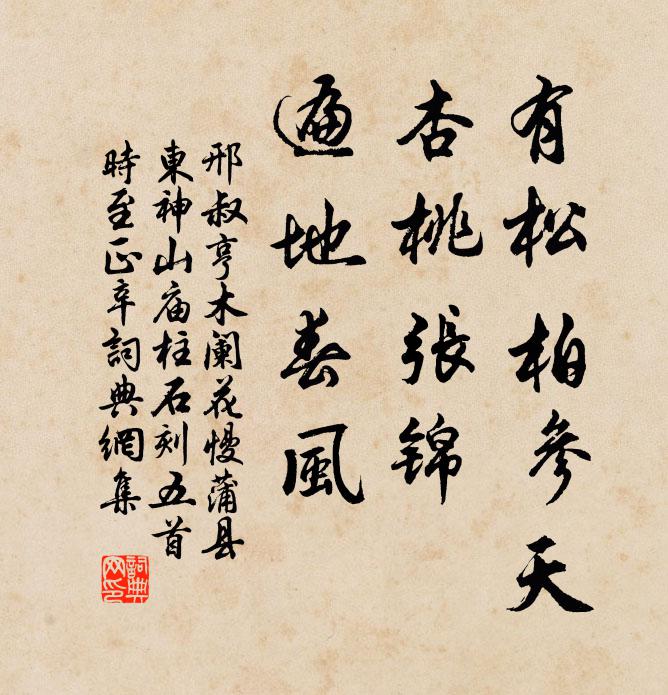 有松柏參天
杏桃張錦
遍地春風
邢叔亨木闌花慢蒲县
東神山庙柱石刻五首
時至正辛詞典網集
詞典
网印